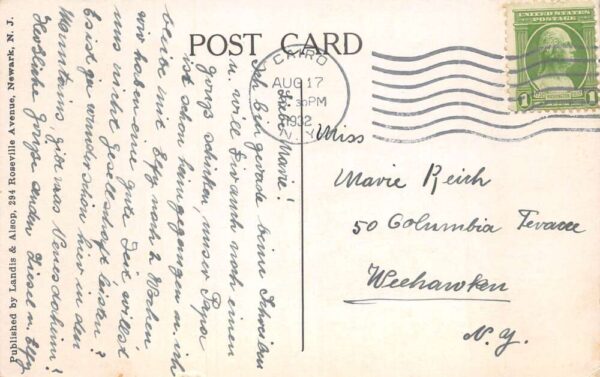 POST CARD
Published by Landis & Alsop, 294 Roseville Avenue, Newark, N. J.
CAIRO
AUG 17
30 PM
1932
N. Y.
UNITED STATES POSTAGE
1 1
Liebe Marie!
Ich bin gerade beim Schreiben
u. will Dir auch noch einen
Gruss schicken, unser Papa
ist schon heimgegangen u. ich
bleibe mit Elsy noch 2 Wochen
wir haben eine gute Zeit, willst
uns nicht Gesellschaft leisten?
Es ist ja wunderschön hier in den
Mountains, gibt was Neues daheim?
Herzliche Grüsse senden u. Elsy
Miss
Marie Reich
50 Columbia Terrace
Weehawken
N. Y.